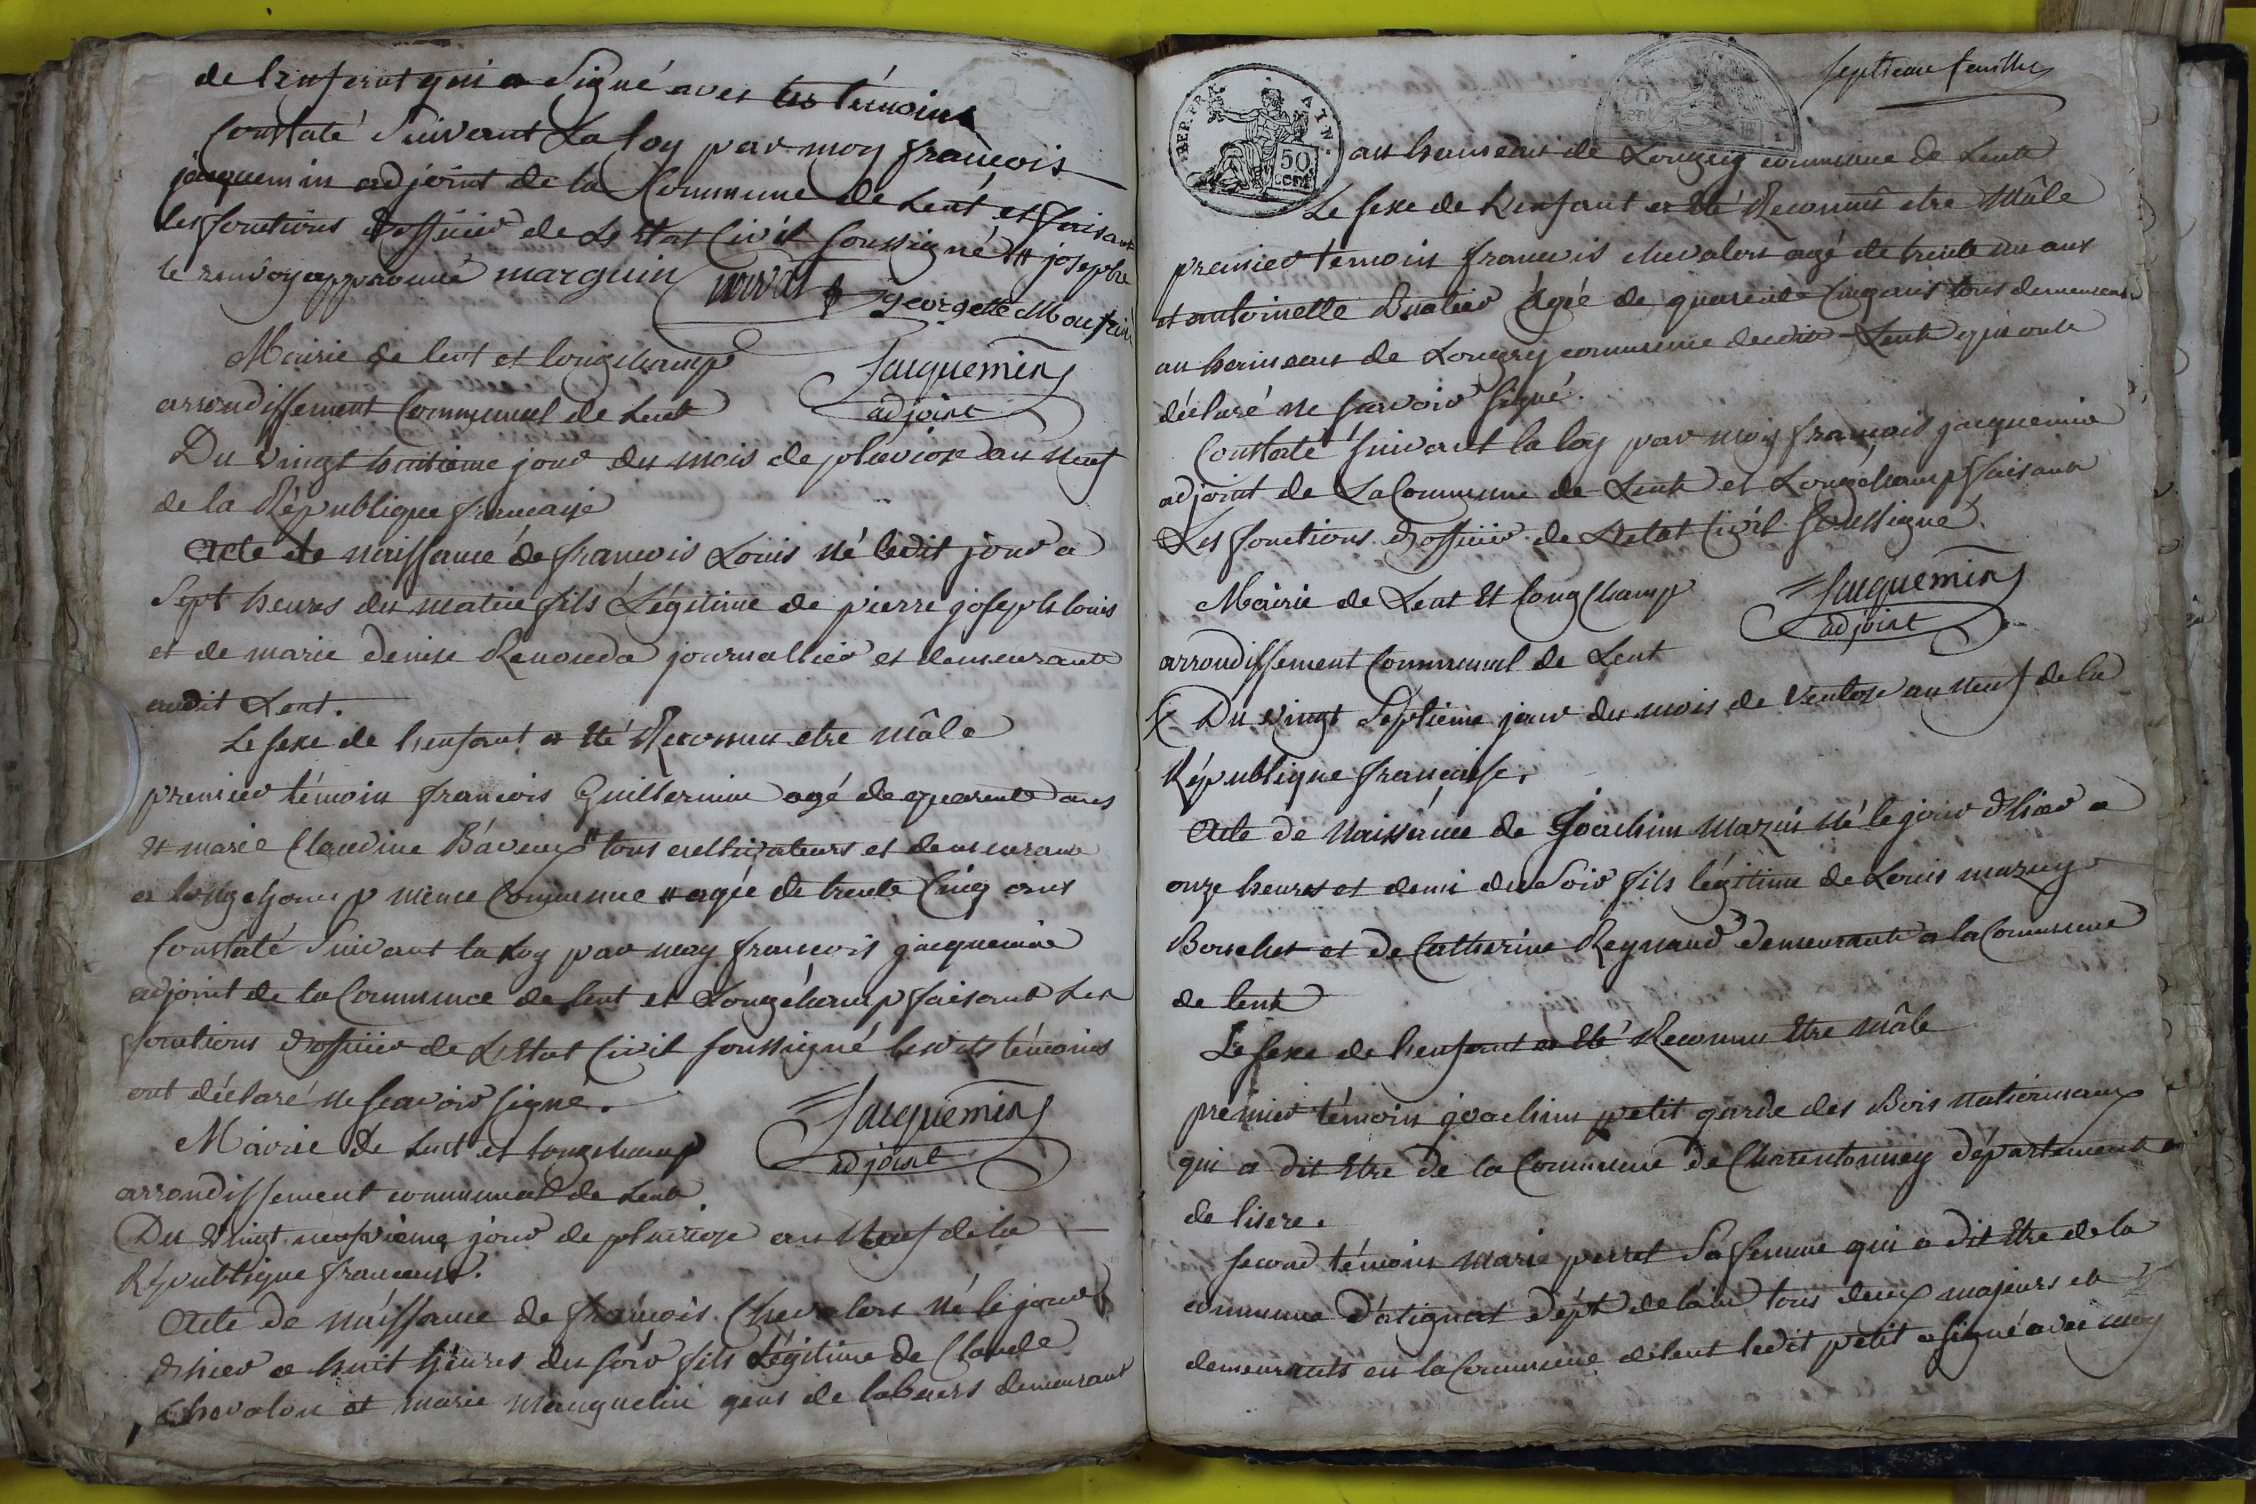 de Lenfent qui a Signé avec les témoins
Constaté Suivant La Loy par moy françois
jacquemin adjoint de la Commune de Lent et faisant
les fonctions d'officier de Lestat Civil soussigné # josephe
le renvoy approuvé marguin georgette Moufrin
Mairie de lent et longchamp
arrondissement Communal de Lent
Jacquemin
adjoint
Du vingt huitieme jour du mois de pluviose an neuf
de la République francaise
Acte de naissance de francois Louis né ledit jour a
Sept heures du matin fils Légitime de pierre joseph louis
et de marie denise Renouda journallier et demeurants
audit Lent.
Le sexe de henfant a été Reconnu etre mâle
premier témoin francois Guillermin agé de quarente ans
et marie Claudine Báveux # tous cultivateurs et demeurant
a longchamp meme Commune # agée de trente Cinq ans
Constaté Suivant la Loy par moy francois jacquemin
adjoint de la Commune de lent et Longchamp faisant Les
fonctions d'officier de L'Etat Civil soussigné lesdits témoins
ont déclaré ne scavoir signé.
Jacquemin
adjoint
Mairie de Lent et longchamp
arrondissement communal de Lent
Du vingt neuvieme jour de pluviose an neuf de la
République francaise.
Acte de naissance de francois Chevalon né le jour
d'hier a huit heures du soir fils Légitime de Claude
Chevalon et marie mauguelin gens de labeurs demeurant
septieme feuillet
BER. FRA
ATN.
50
cent.
au hameau de Longry commune de Lent
Le sexe de Lenfant a été Reconnu etre Mâle
premier témoin francois chevalon agé de trente un ans
et antoinette Buatier agée de quarente Cinq ans tous demeurant
au hameau de Longry commune dudit Lent qui ont
déclaré ne scavoir signé.
Constaté suivant la loy par moy francois jacquemin
adjoint de La Commune de Lent et Longchamp faisant
Les fonctions d'officier de L'etat Civil soussigné.
Jacquemin
adjoint
Mairie de Lent Et longchamp
arrondissement Communal de Lent
Du vingt Septieme jour du mois de ventose an neuf de la
République francaise.
Acte de Naissance de Joachim Mazui né le jour d'hier a
onze heures et demi du Soir fils légitime de Louis mazuy
Borchet et de Catherine Reynaud demeurants a la Commune
de lent
Le sexe de henfant a Eté Reconnu Etre mâle
premier témoin joachim petit garde des Bois nationnaux
qui a dit Etre de la Commune de Charentonnay département
de lisere.
second témoin marie perret Sa femme qui a dit Etre de la
commune d'atignat dépt de lain tous deux majeurs et
demeurants en la Commune de lent ledit petit a signé avec moy